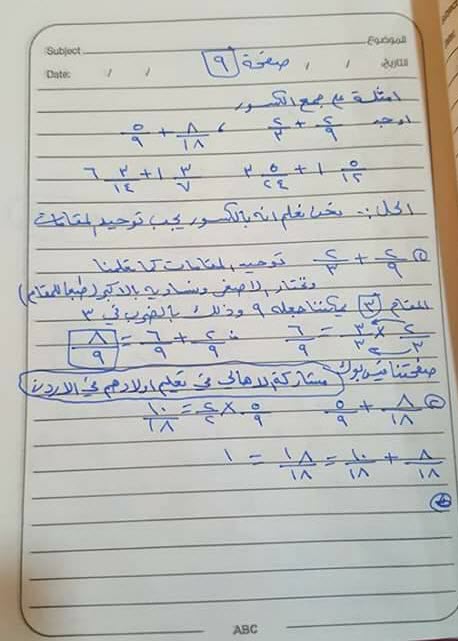 Subject الموضوع
Date: / / التاريخ / /
صفحة ٩
امثلة على جمع الكسور
اوجد ٢/٩ + ٢/٣ ، ٨/١٨ + ٥/٩
١ ٥/١٢ + ٣ ٥/٢٤ ١ ٣/٧ + ٦ ٣/١٤
الحل :- نحن نعلم انه بالكسور يجب توحيد المقامات
① ٢/٩ + ٢/٣ توحيد المقامات كما تعلمنا
ونختار الاصغر ونساويه بالاكبر (طبعا المقام)
المقام ٣ يمكننا جعله ٩ وذلك بالضرب في ٣
٢/٣ × ٣/٣ = ٦/٩ ٢/٩ + ٦/٩ = ٨/٩
صفحتنا فيس بوك مشاركة الاهالي في تعليم اولادهم في الاردن
② ٨/١٨ + ٥/٩ ٥/٩ × ٢/٢ = ١٠/١٨
٨/١٨ + ١٠/١٨ = ١٨/١٨ = ١
ABC